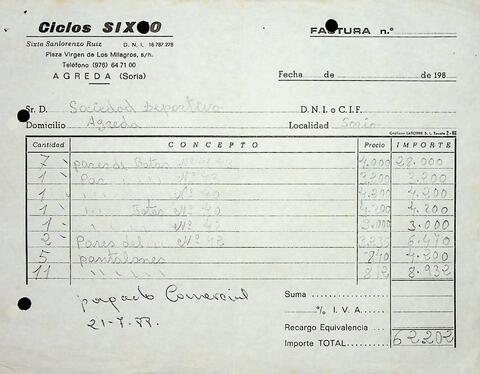 Ciclos SIXTO
Sixto Sanlorenzo Ruiz D. N. I. 16.787.278
Plaza Virgen de Los Milagros, s/n.
Teléfono (976) 64 71 00
AGREDA (Soria)
FACTURA n.º
Fecha de de 198
Sr. D. Sociedad Deportiva
D. N. I. o C. I. F.
Domicilio Agreda
Localidad Soria
Cantidad CONCEPTO Precio IMPORTE
7 pares de Botas Nº 41 43 4.000 28.000
1 Par " " " 3.200 3.200
1 " " " Nº 40 4.200 4.200
1 " " Botas Nº 40 4.200 4.200
1 " " " Nº 40 3.000 3.000
2 Pares del " Nº 42 3.235 6.470
5 pantalones 840 4.200
11 " " " 812 8.932
Suma
% I. V. A.
Recargo Equivalencia
Importe TOTAL 62.202
pagado Comercial
21-7-88.